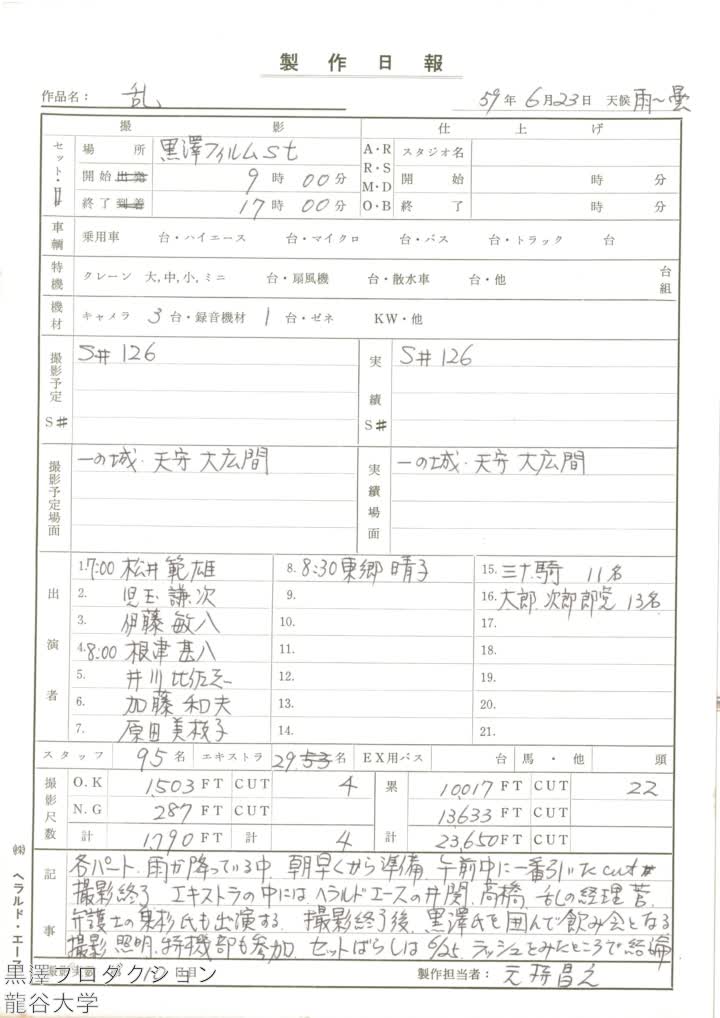 製作日報
作品名： 乱 59年 6月23日 天候 雨〜曇
撮影 仕上げ
セット・ロケ
場所 黒澤フィルムSt A・R スタジオ名
開始 出発 9時00分 R・S M・D 開始 時 分
終了 到着 17時00分 O・B 終了 時 分
車輌 乗用車 台・ハイエース 台・マイクロ 台・バス 台・トラック 台
特機 クレーン 大,中,小,ミニ 台・扇風機 台・散水車 台・他 台 組
機材 キャメラ 3台・録音機材 1台・ゼネ KW・他
撮影予定 S# S#126 実績 S# S#126
撮影予定場面 一の城・天守 大広間 実績場面 一の城・天守 大広間
出演者
1. 7:00 松井範雄 8. 8:30 東郷晴子 15. 三十騎 11名
2. 児玉謙次 9. 16. 太郎、次郎郎党 13名
3. 伊藤敏八 10. 17.
4. 8:00 根津甚八 11. 18.
5. 井川比佐志 12. 19.
6. 加藤和夫 13. 20.
7. 原田美枝子 14. 21.
スタッフ 95名 エキストラ 29 53名 EX用バス 台 馬・他 頭
撮影尺数 O.K 1,503 FT CUT 4 累計 10,017 FT CUT 22
N.G 287 FT CUT 13,633 FT CUT
計 1,790 FT 計 4 23,650 FT CUT
記事
各パート、雨が降っている中、朝早くから準備、午前中に一番引いたcut
撮影終了 エキストラの中にはヘラルドエースの井関、高橋、乱の経理 菅、
弁護士の 杉氏も出演する。撮影終了後、黒澤氏を囲んで飲み会となる
撮影、照明、特機部も参加 セットばらしは6/25、ラッシュをみたところで結論
撮影実数 日目 製作担当者：
㈱ヘラルド・エース
黒澤プロダクション
龍谷大学